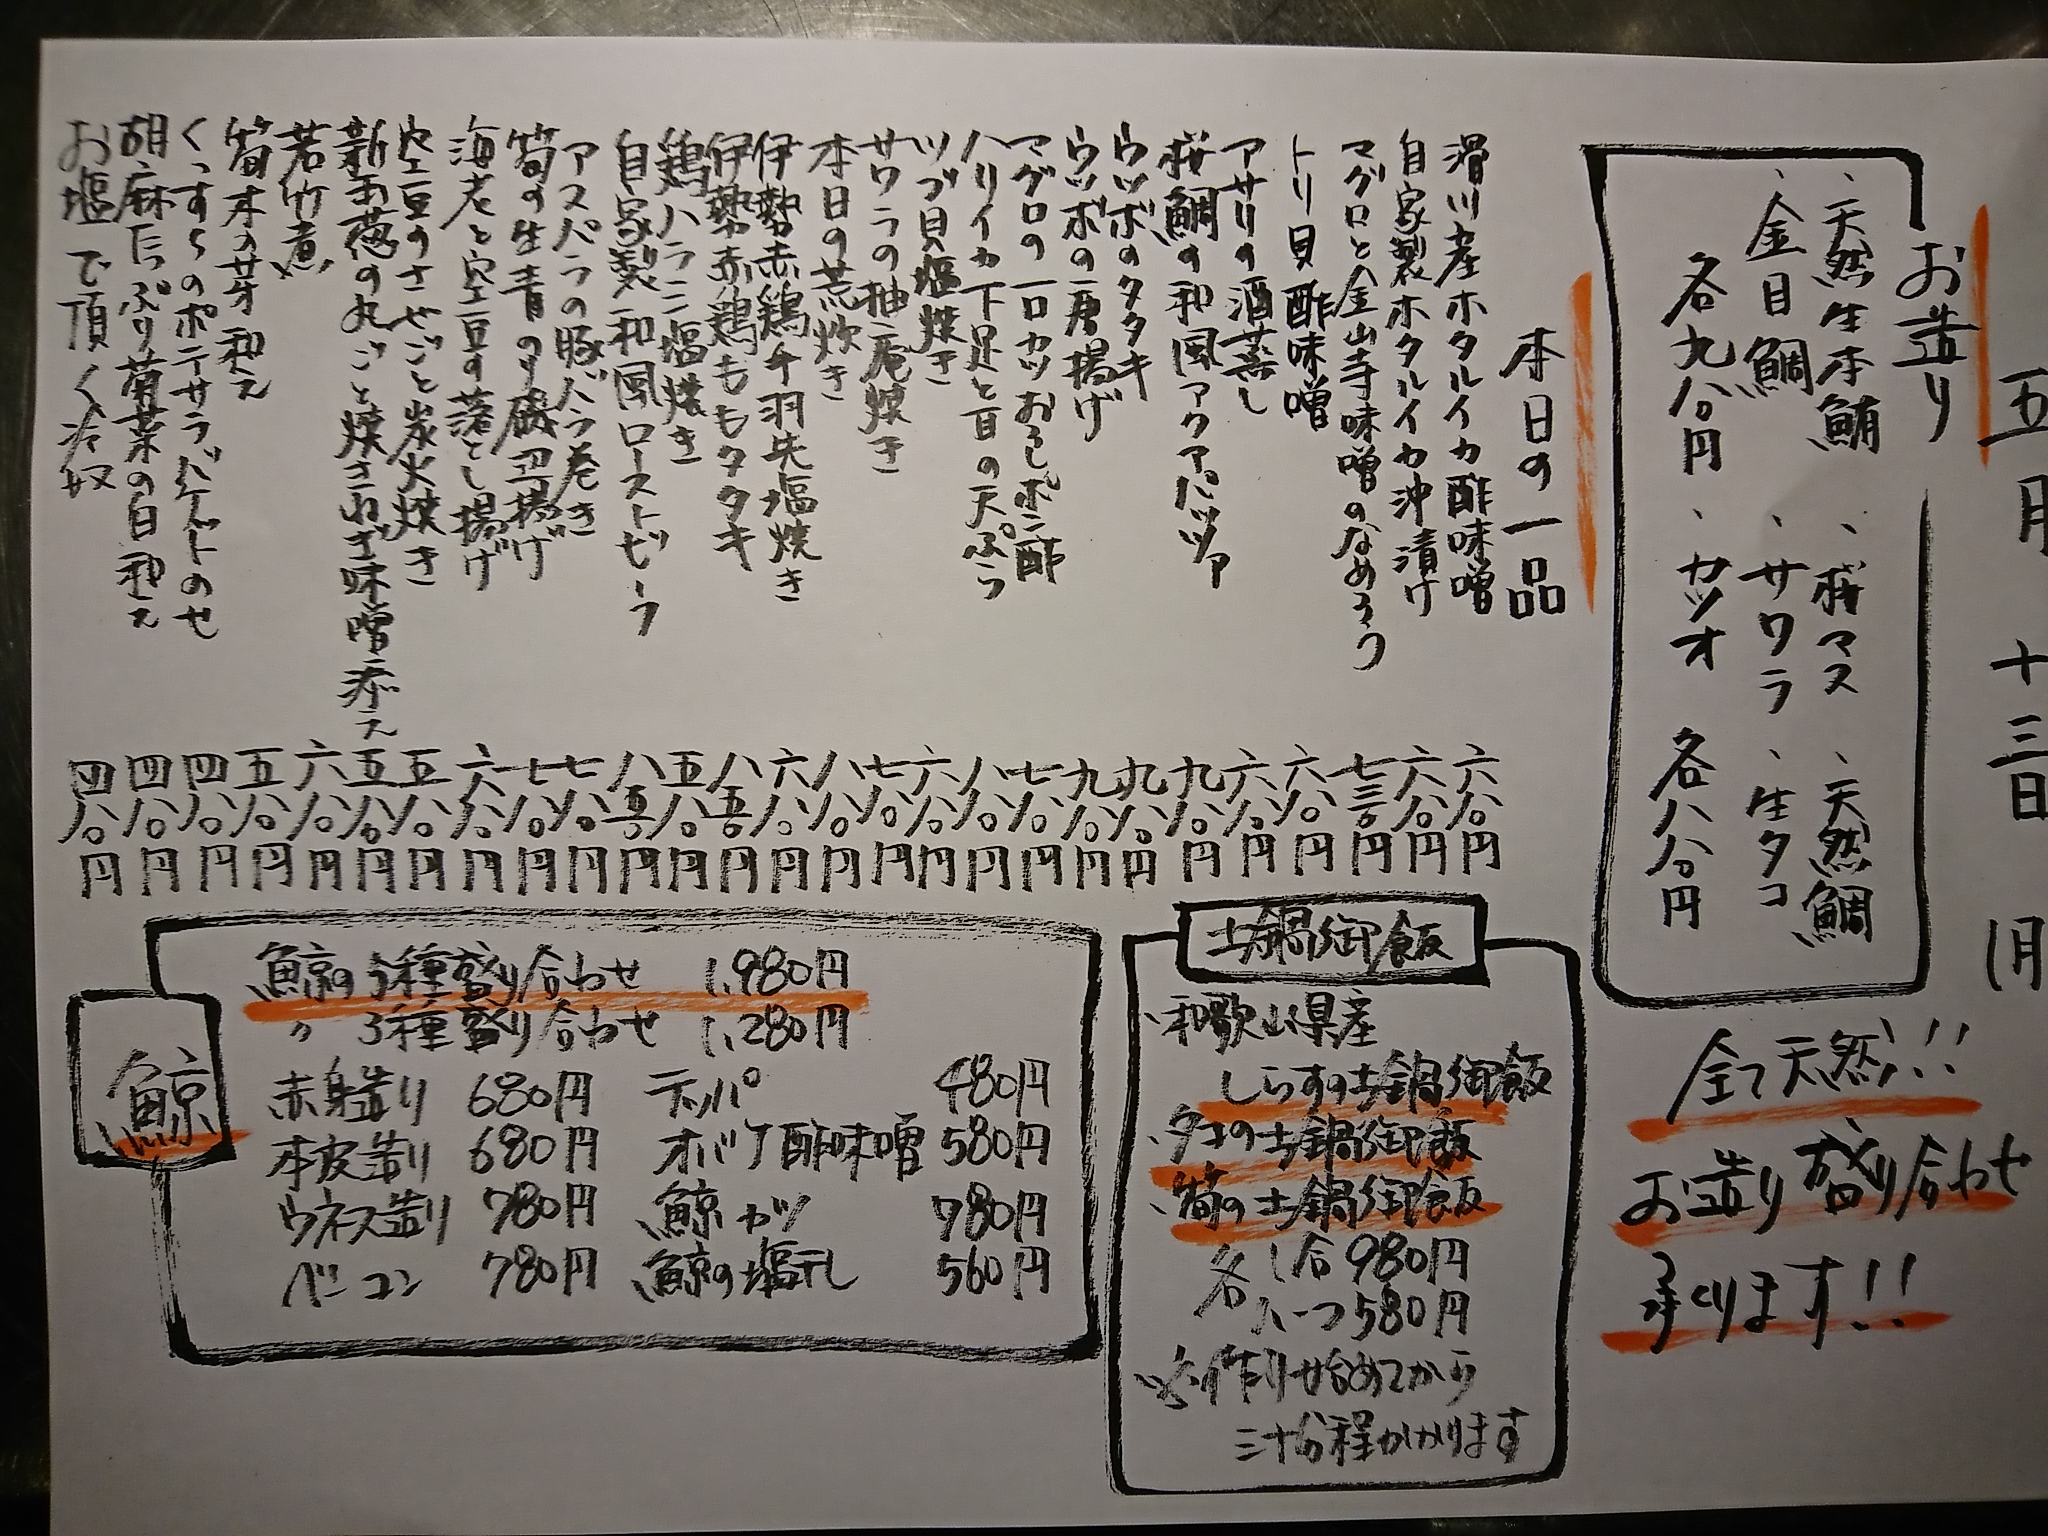 五月 十三日 月
お造り
、天然生本鮪 、桜マス 、天然鯛
、金目鯛 、サワラ 、生タコ
各九八〇円 、カツオ 各八八〇円
全て天然!!
お造り盛り合わせ
承ります!!
本日の一品
滑川産ホタルイカ酢味噌 六八〇円
自家製ホタルイカ沖漬け 六八〇円
マグロと金山寺味噌のなめろう 七三〇円
トリ貝酢味噌 六八〇円
アサリの酒蒸し 六八〇円
桜鯛の和風アクアパッツァ 九八〇円
ウツボのタタキ 九八〇円
ウツボの唐揚げ 九八〇円
マグロの一口カツおろしポン酢 七八〇円
ハリイカ下足と耳の天ぷら 八八〇円
ツブ貝塩焼き 六八〇円
サワラの柚庵焼き 七八〇円
本日の荒炊き 八八〇円
伊勢赤鶏手羽先塩焼き 六八〇円
伊勢赤鶏ももタタキ 八五〇円
鶏ハラミ塩焼き 五八〇円
自家製和風ローストビーフ 八五〇円
アスパラの豚バラ巻き 七八〇円
筍の生青のり磯辺揚げ 七八〇円
海老と空豆す落とし揚げ 六八〇円
空豆のさやごと炭火焼き 五八〇円
新玉葱の丸ごと焼きねぎ味噌添え 五八〇円
若竹煮 六八〇円
筍木の芽和え 五八〇円
くっすらのポテサラバゲットのせ 四八〇円
胡麻たっぷり菊菜の白和え 四八〇円
お塩で頂く冷奴 四八〇円
土鍋御飯
、和歌山県産
しらすの土鍋御飯
、タコの土鍋御飯
、筍の土鍋御飯
各 1合980円
ハーフ580円
※作り始めてから
三十分程かかります
鯨
鯨の5種盛り合わせ 1,980円
〃 3種盛り合わせ 1,280円
赤身造り 680円 テッパ 480円
本皮造り 680円 オバケ酢味噌 580円
ウネス造り 780円 鯨カツ 780円
ベーコン 780円 鯨の塩干し 560円